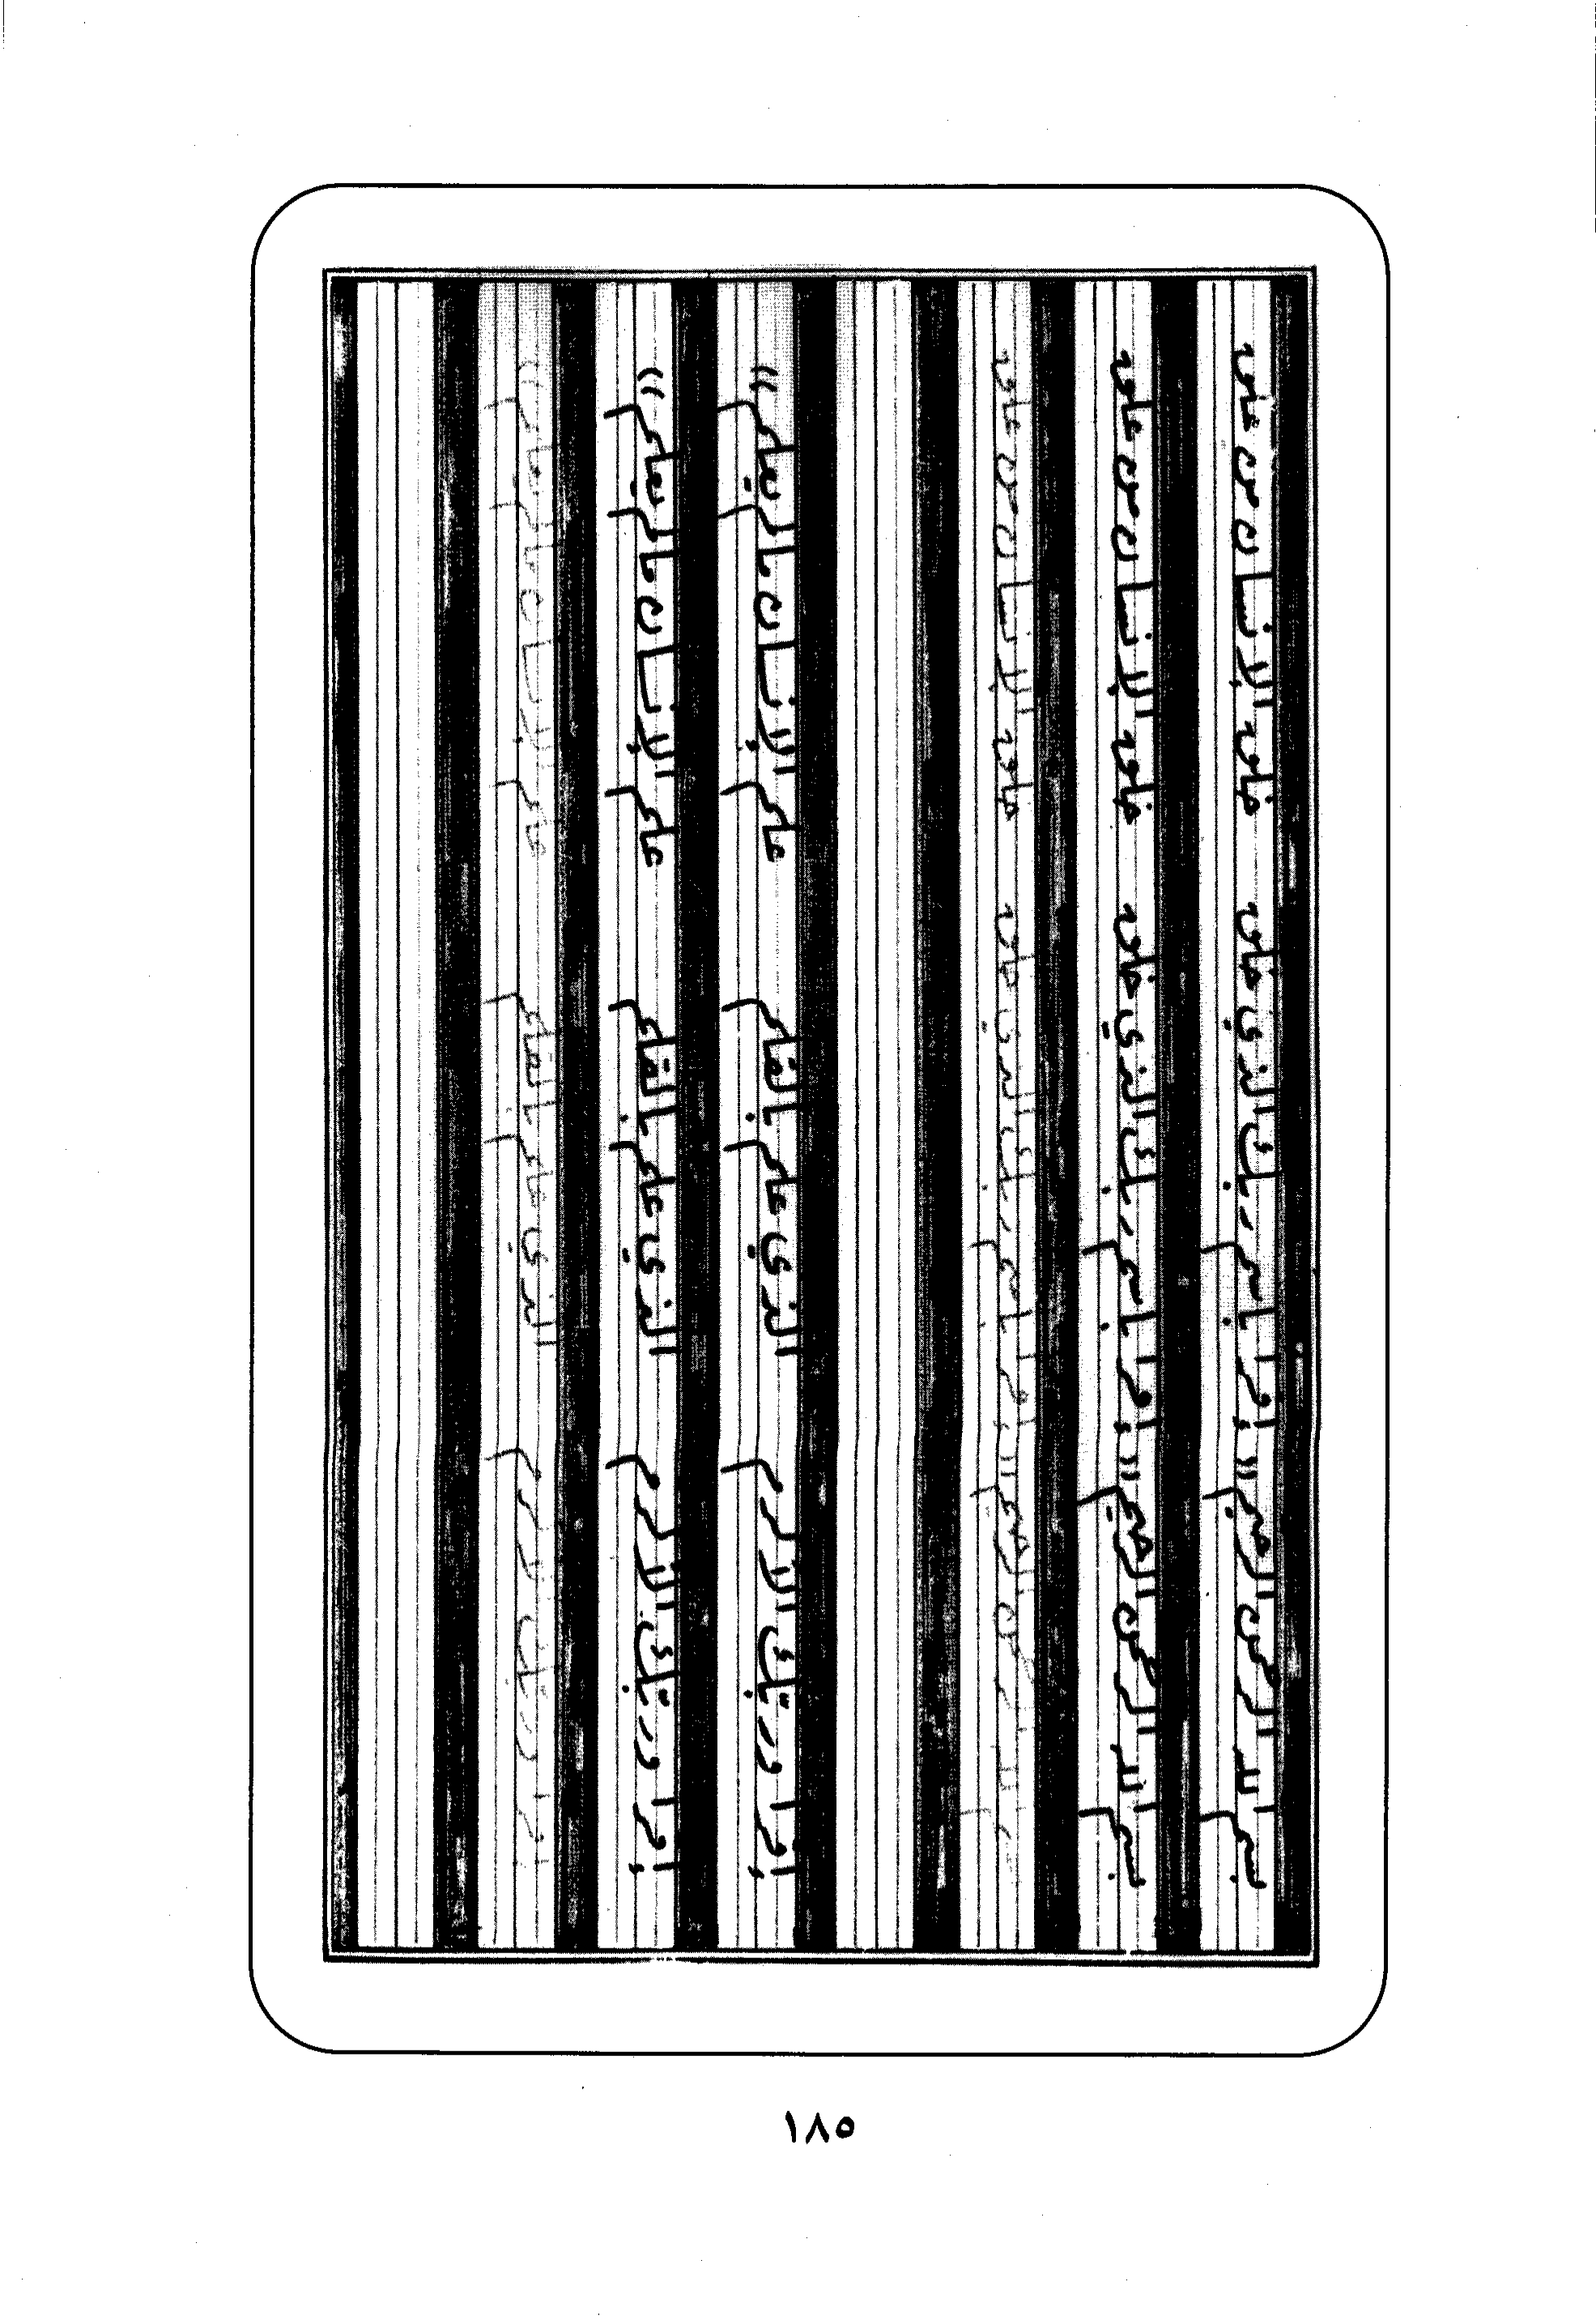 بسم الله الرحمن الرحيم (( إقرا باسم ربك الذي خلق خلق الإنسان من علق
بسم الله الرحمن الرحيم (( إقرا باسم ربك الذي خلق خلق الإنسان من علق
بسم الله الرحمن الرحيم (( إقرا باسم ربك الذي خلق خلق الإنسان من علق
إقرا وربك الاكرم الذي علم بالقلم علم الإنسان ما لم يعلم ))
إقرا وربك الاكرم الذي علم بالقلم علم الإنسان ما لم يعلم ))
إقرا وربك الاكرم الذي علم بالقلم علم الإنسان ما لم يعلم ))
١٨٥